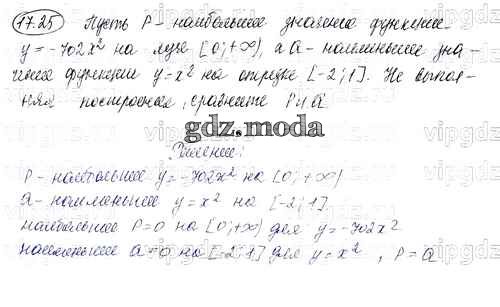 17.25 Пусть P - наибольшее значение функции
y = -702x² на луче [0; +∞), а Q - наименьшее зна-
чение функции y = x² на отрезке [-2; 1]. Не выпол-
няя построения, сравните P и Q
gdz.moda
Решение:
P - наибольшее y = -702x² на [0; +∞)
Q - наименьшее y = x² на [-2; 1]
наибольшее P = 0 на [0; +∞) для y = -702x²
наименьшее Q = 0 на [-2; 1] для y = x², P = Q